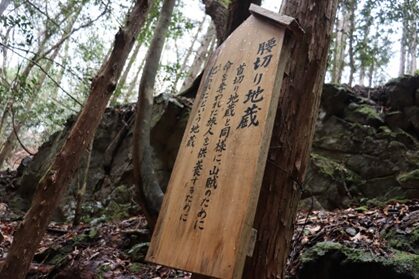 腰切り地蔵
首切り地蔵と同様に、山賊のために
命を奪われた旅人を供養するために
という地蔵